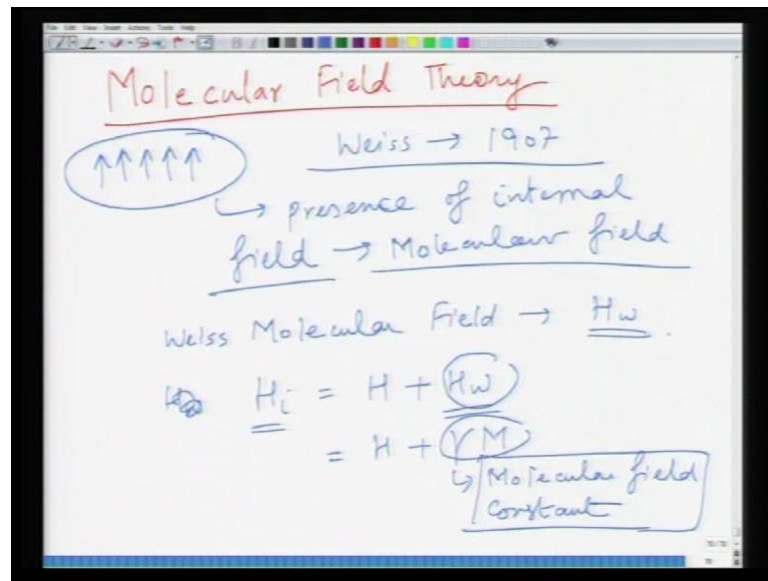 Molecular Field Theory
Weiss → 1907
↑↑↑↑↑
↳ presence of internal
field → Moleculaur field
Weiss Molecular Field → Hw.
Hi = H + Hw
= H + γM
↳ Molecular field
Constant